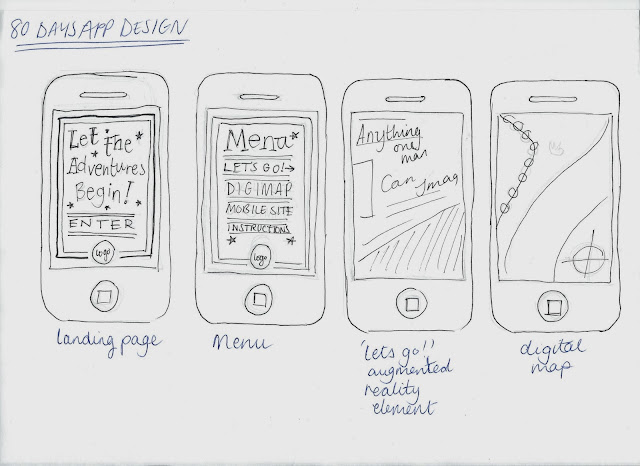 80 DAYS APP DESIGN
Let the
Adventures
Begin!
ENTER
logo
landing page
Menu
LETS GO!→
DIGIMAP
MOBILE SITE
INSTRUCTIONS
logo
Menu
Anything
one
man
Can Imag
'Lets go!'
augmented
reality
element
digital
map